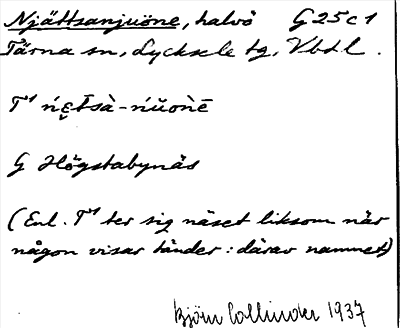 Njättsanjuone, halvö G25c1
Tärna sn, Lycksele tg, Vbtl.
T¹ ńe̮t̄sà-ńŭoǹē
G Högstabynäs
(Enl. T¹ ter sig näset liksom när
någon visar tänder: därav namnet)
Björn Collinder 1937